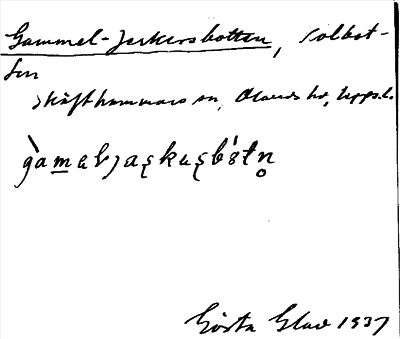 Gammel-Jerkersbotten, Solbot-
ten
Skäfthammars sn, Olands hd, Uppsl.
g̀am̲elja̢ska̢sbótn̥
Gösta Glad 1937